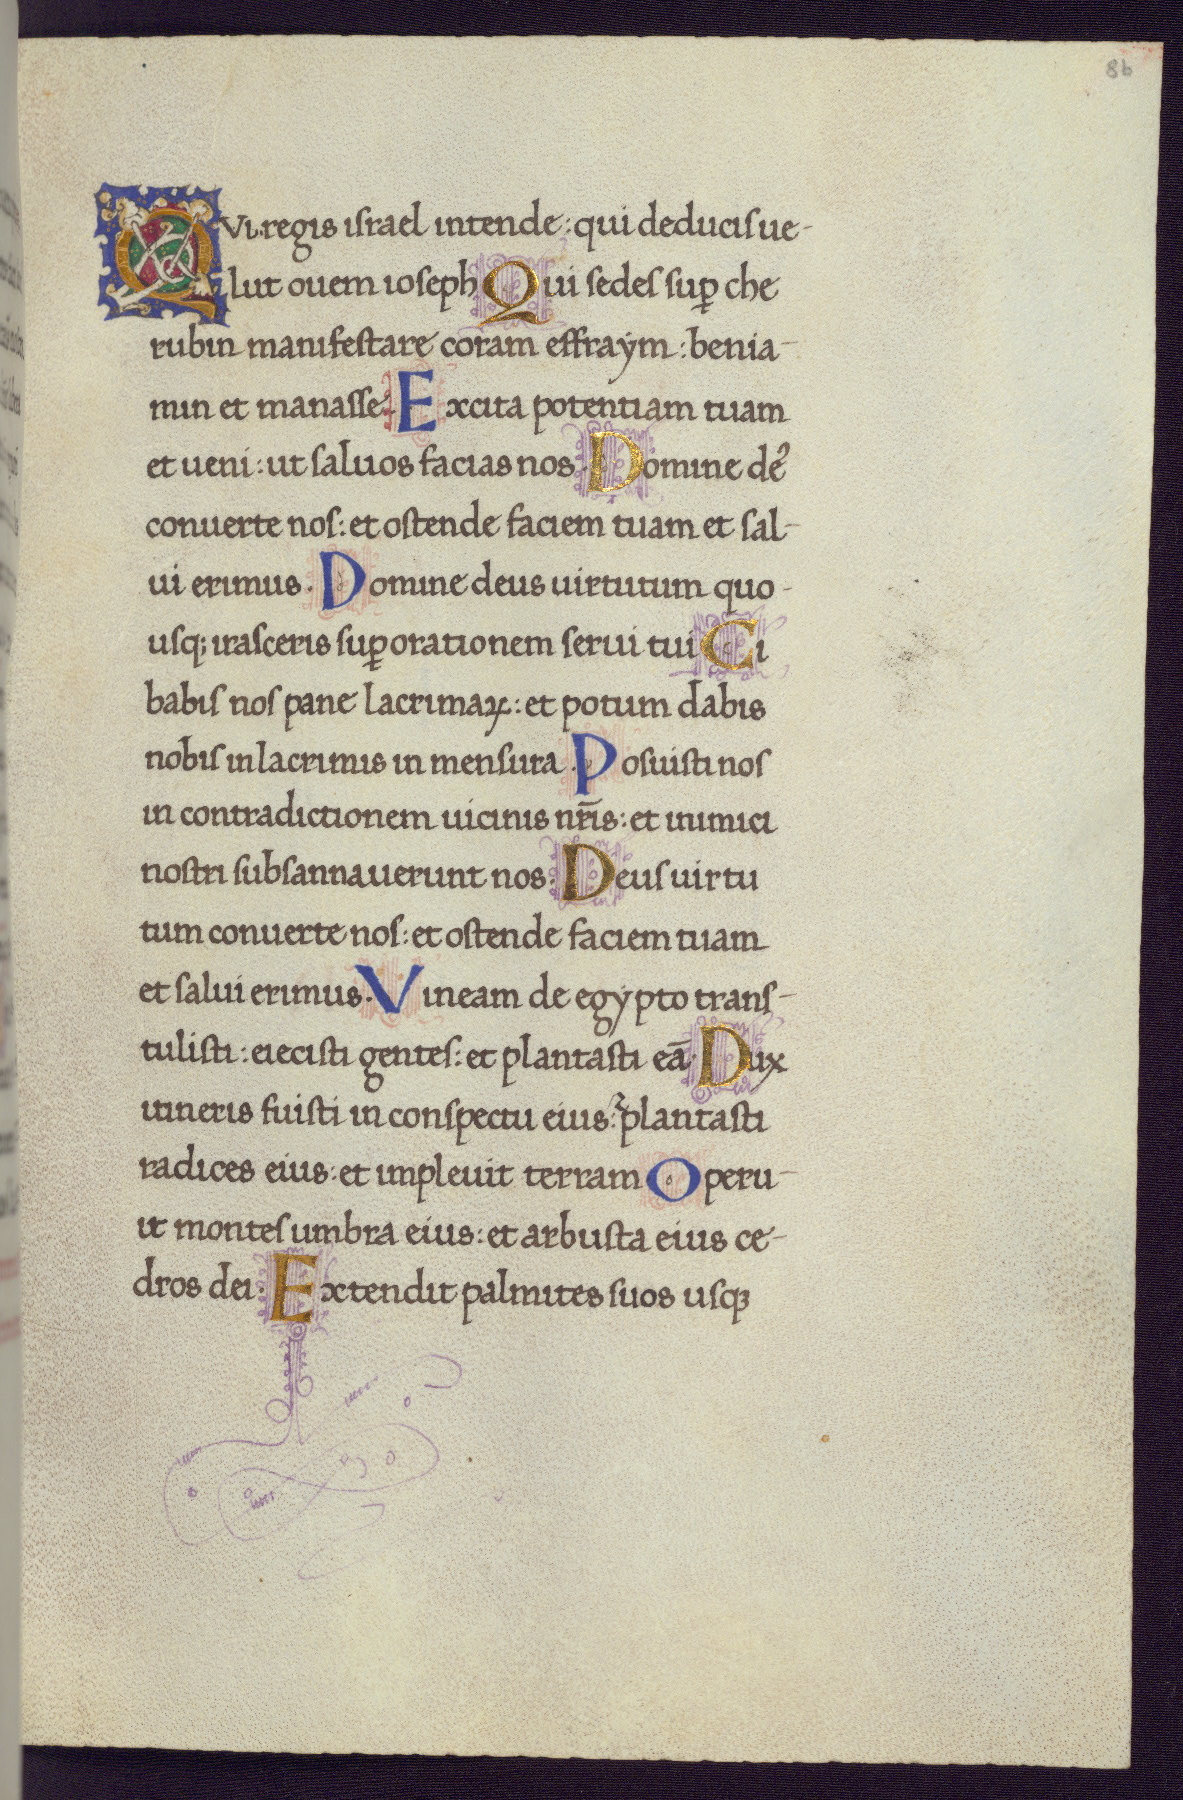 86
QVi regis israel intende: qui deducis ue-
lut ouem ioseph Qui sedes suꝑ che
rubin manifestare coram effraẏm: benia-
min et manasse. Excita potentiam tuam
et ueni: ut saluos facias nos. Domine deꝰ
conuerte nos: et ostende faciem tuam et sal-
ui erimus. Domine deus uirtutum quo-
usq; irasceris suꝑ orationem serui tui Ci
babis nos pane lacrimaꝝ: et potum dabis
nobis in lacrimis in mensura. Posuisti nos
in contradictionem uicinis nr̄is: et inimici
nostri subsannauerunt nos: Deus uirtu
tum conuerte nos: et ostende faciem tuam
et salui erimus. Vineam de egẏpto trans-
tulisti: eiecisti gentes: et plantasti eā. Dux
itineris fuisti in conspectu eius: plantasti
radices eius: et impleuit terram Operu-
it montes umbra eius: et arbusta eius ce-
dros dei. Extendit palmites suos usqꝫ